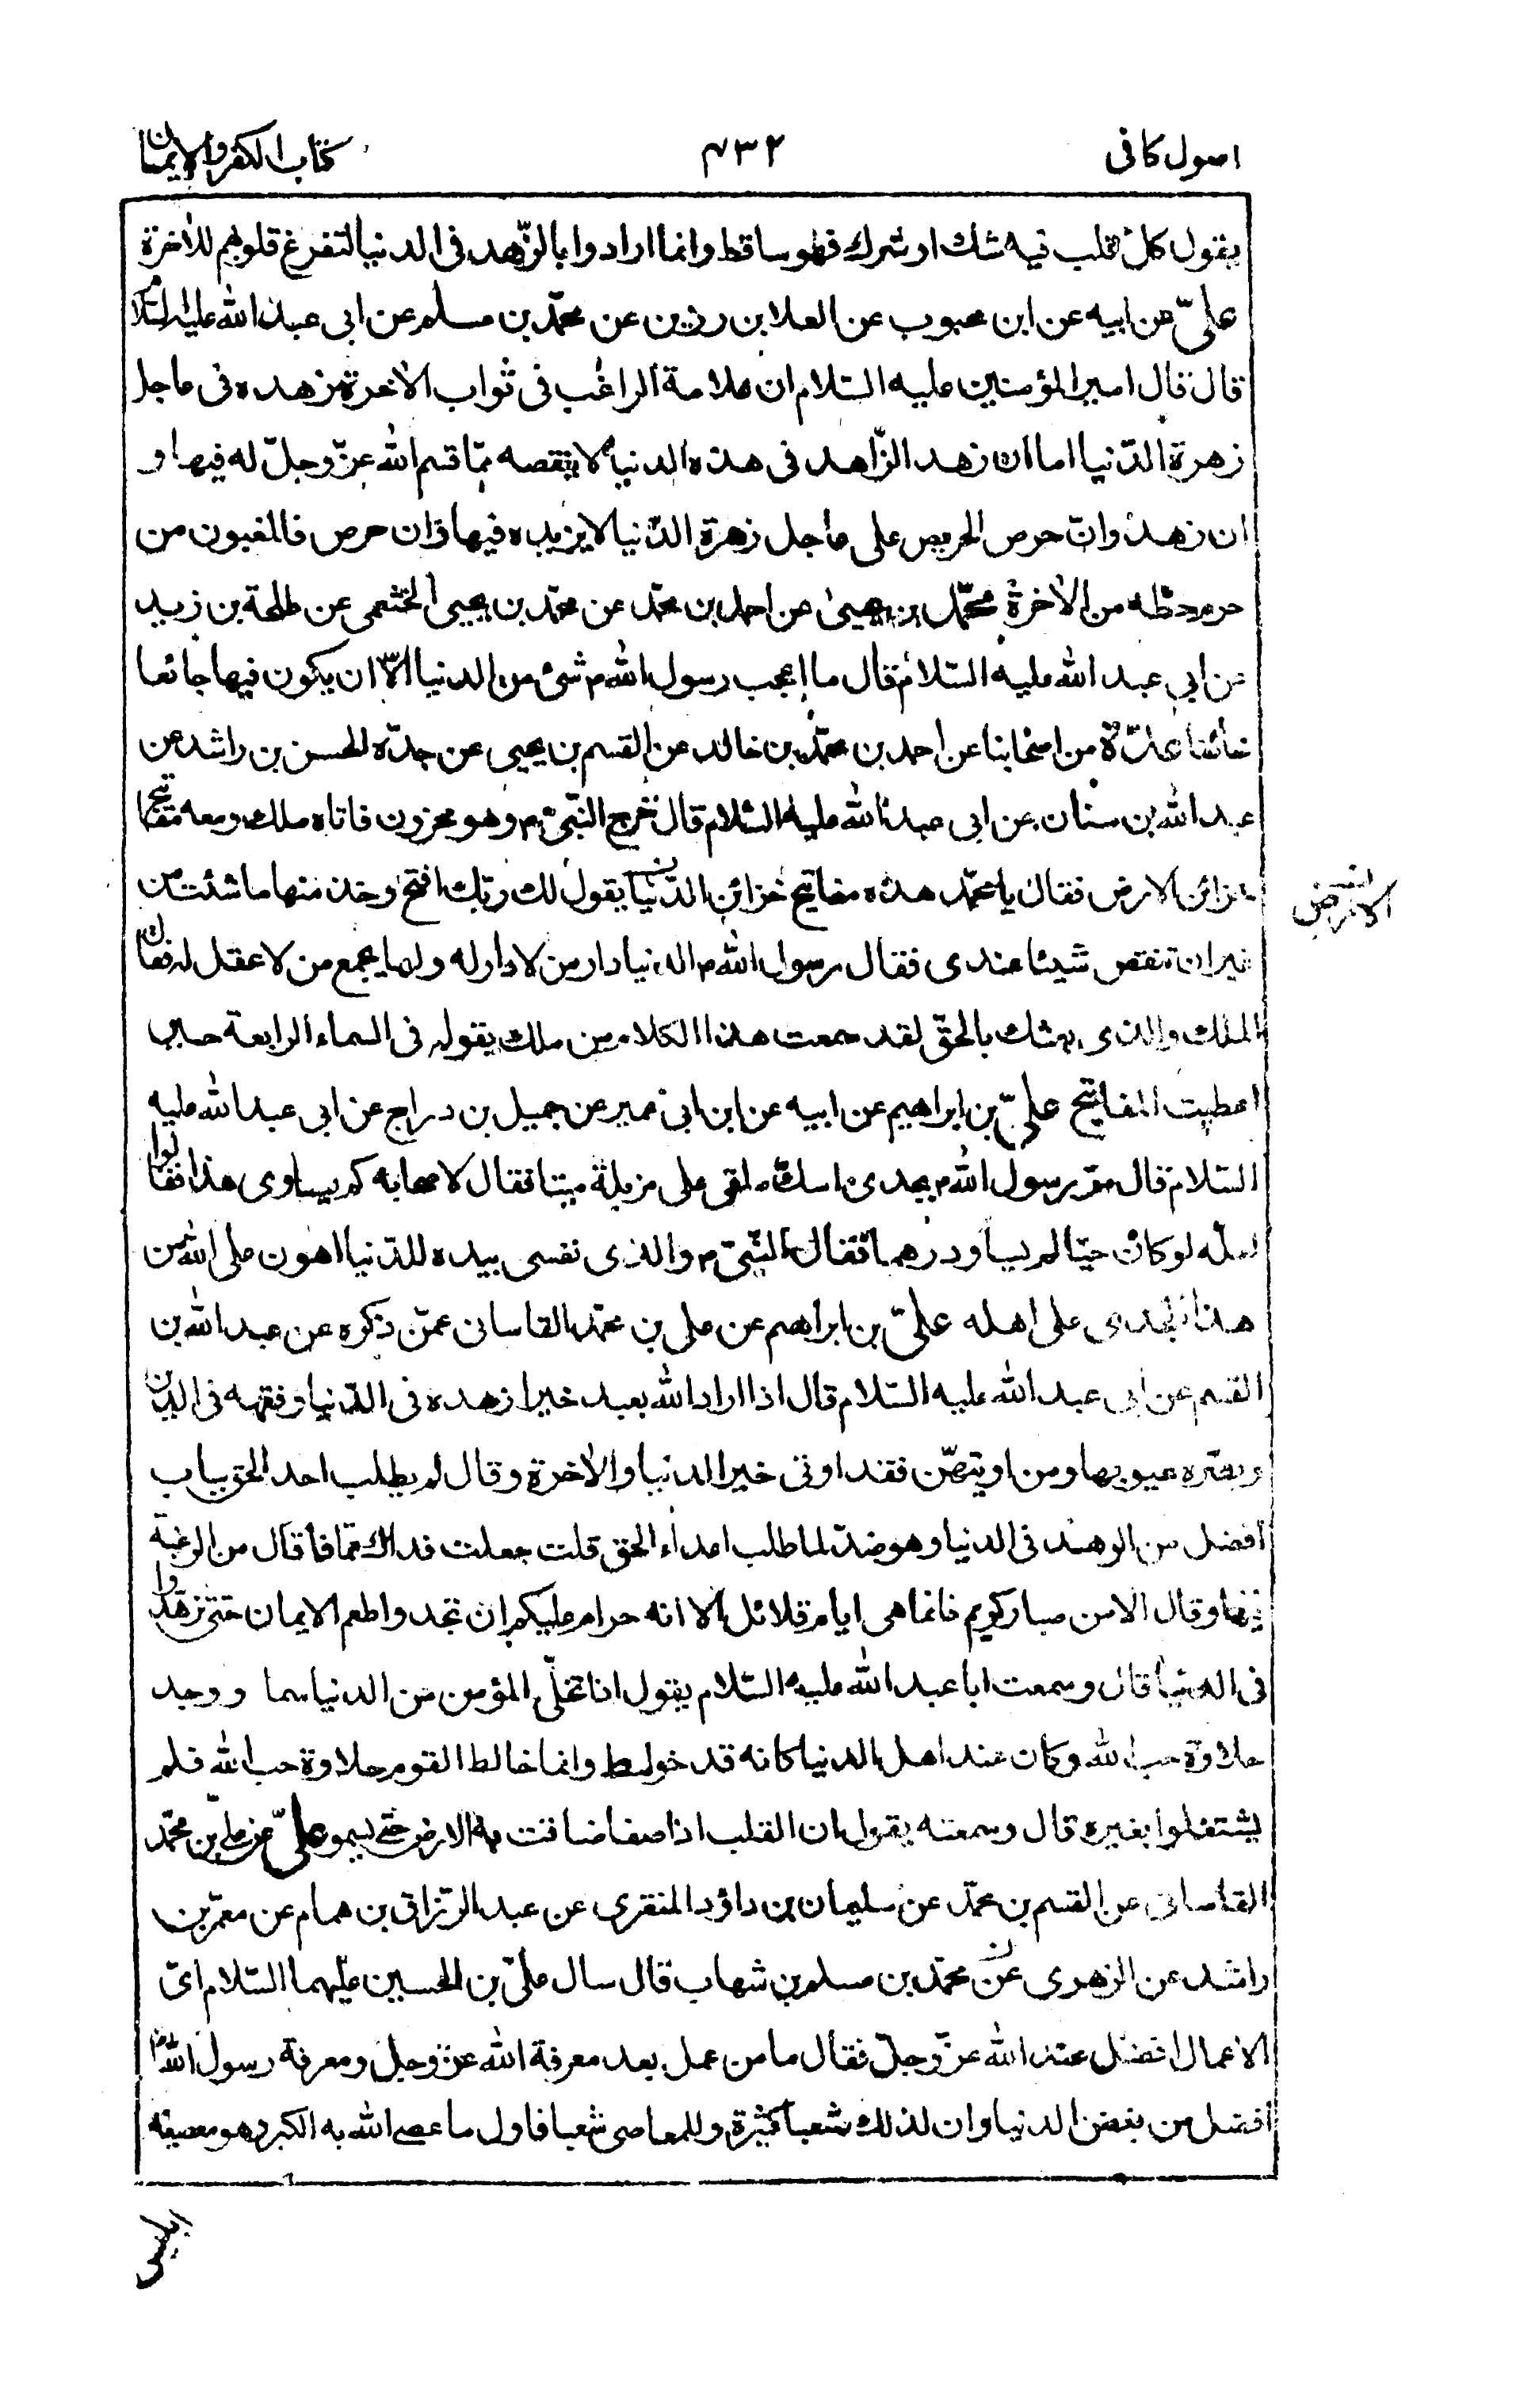 اصول كافى ۴۳۲ كتاب الكفر والايمان
يقول كل قلب فيه شك او شرك فهو ساقط وانما ارادوا بالزّهد فى الدنيا لتفرغ قلوبهم للاخرة
علىّ عن ابيه عن ابن محبوب عن العلا بن رزين عن محمّد بن مسلم عن ابى عبد الله عليه السّلام
قال قال امير المؤمنين عليه السّلام ان علامة الراغب فى ثواب الاخرة زهده فى عاجل
زهرة الدّنيا اما ان زهد الزّاهد فى هذه الدنيا لا ينقصه ممّا قسم الله عزّ وجلّ له فيها و
ان زهد وانّ حرص الحريص على عاجل زهرة الدّنيا لا يزيده فيها وان حرص فالمغبون من
حرم حظّه من الاخرة محمّد بن يحيىٰ عن احمد بن محمّد عن محمّد بن يحيى الخثعمى عن طلحة بن زيد
عن ابى عبد الله عليه السّلام قال ما اعجب رسول الله م شئ من الدنيا الّا ان يكون فيها جائعا
خائفا عدّة من اصحابنا عن احمد بن محمّد بن خالد عن القسم بن يحيى عن جدّه الحسن بن راشد عن
عبد الله بن سنان عن ابى عبد الله عليه السّلام قال خرج النّبىّ م وهو محزون فاتاه ملك ومعه مفاتيح
خزائن الارض فقال يا محمّد هذه مفاتيح خزائن الدّنيا يقول لك ربّك افتح وخذ منها ما شئت من
غير ان تنقص شيئا عندى فقال رسول الله م الدنيا دار من لا دار له ولها يجمع من لا عقل له فقال
الملك والذى بعثك بالحقّ لقد سمعت هذا الكلام من ملك يقوله فى السماء الرابعة حين
اعطيت المفاتيح علىّ بن ابراهيم عن ابيه عن ابن ابى عمير عن جميل بن دراج عن ابى عبد الله عليه
السّلام قال مرّ رسول الله م بجدى اسكّ ملقى على مزبلة ميتا فقال لاصحابه كم يساوى هذا فقالوا
لعلّه لو كان حيّا لم يساو درهما فقال النّبىّ م والذى نفسى بيده للدّنيا اهون على الله من
هذا الجدى على اهله علىّ بن ابراهيم عن على بن محمّد القاسانى عمّن ذكره عن عبد الله بن
القسم عن ابى عبد الله عليه السّلام قال اذا اراد الله بعبد خيرا زهده فى الدّنيا وفقهه فى الدين
وبصّره عيوبها ومن اوتيهنّ فقد اوتى خير الدنيا والاخرة وقال لم يطلب احد الحق بباب
افضل من الزهد فى الدنيا وهو ضدّ لما طلب اعداء الحق قلت جعلت فداك ممّا ذا قال من الرغبة
فيها وقال الا من صبار كريم فانما هى ايام قلائل الا انه حرام عليكم ان تجدوا طعم الايمان حتى تزهدوا
فى الدنيا قال وسمعت ابا عبد الله عليه السّلام يقول اذا تخلّى المؤمن من الدنيا سما ووجد
حلاوة حب الله وكان عند اهل الدنيا كانه قد خولط وانما خالط القوم حلاوة حب الله فلم
يشتغلوا بغيره قال وسمعته يقول ان القلب اذا صفا ضاقت به الارض حتى يسمو علىّ عن علىّ بن محمّد
القاسانى عن القسم بن محمّد عن سليمان بن داؤد المنقرى عن عبد الرّزاق بن همام عن معمّر بن
راشد عن الزهرى عن محمّد بن مسلم بن شهاب قال سال علىّ بن الحسين عليهما السّلام اىّ
الاعمال افضل عند الله عزّ وجلّ فقال ما من عمل بعد معرفة الله عزّ وجل ومعرفة رسول الله
افضل من بغض الدنيا وان لذلك شعبا كثيرة وللمعاصى شعبا فاول ما عصى الله به الكبر وهو معصية
الارض
ابليس